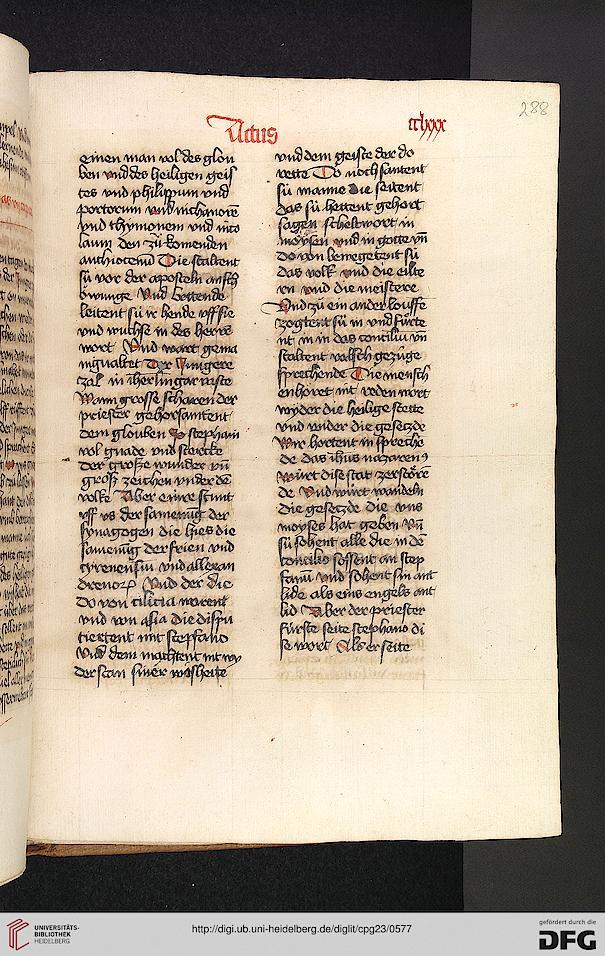 288
Actus
cclxxx
einen man vol des glou
ben vnd des heiligen geis
tes vnd philippum vnd
portorum vnd nichanorē
vnd thymonem vnd nico
laum den zů komenden
anthiocenū Die staltent
sü vor der aposteln ansch
vnd bettende
leitent sü ir hende vff sie
vnd wuchse in des herrē
wort Vnd wart gema
nigualtet Der Jungere
zal in iherusalem
Wann grosse scharen der
priester gehorsamtent
dem glouben So stephan
vol gnade vnd stercke
Der große wunder vñ
große zeichen vnder dē
volke Aber etire stunt
vff vs der samenūg der
synagogen die hies die
samenūg der frien vnd
cyrenensiū vnd allexan
drenorꝝ Vnd der die
do von cilicia warent
vnd von asia die dispu
tiertent mit steffano
Vnd dem machtent nit wy
derstan siner wisheite
vnd dem geiste der do
rette Do noch santent
sü manne die seitent
das sü hettent gehort
sagen scheltwort in
moysen vnd in gotte vñ
do von bewegetent sü
das volk vnd die elte
rn vnd die meistere
Vnd zů ein ander louffe
zogtent sü in vnd fürte
nt in in das concilium vñ
staltent valsch gezüge
sprechende Die mensch
enhöret nit reden wort
wyder die heilige stette
vnd wider die gesetzde
Wir hortent in spreche
de das ihus nazarenꝰ
würt dise stat zerstōrē
de Vnd würt wandeln
die gesetzde die vns
moyses hat geben Vñ
sü sohent alle die in dē
concilio soffent an step
fanū vnd sohent sin ant
lide als eins engels ant
lid Aber der priester
fürste seite stephano di
se wort Als er seite
UNIVERSITÄTS-
BIBLIOTHEK
HEIDELBERG
http://digi.ub.uni-heidelberg.de/diglit/cpg23/0577
gefördert durch die
DFG